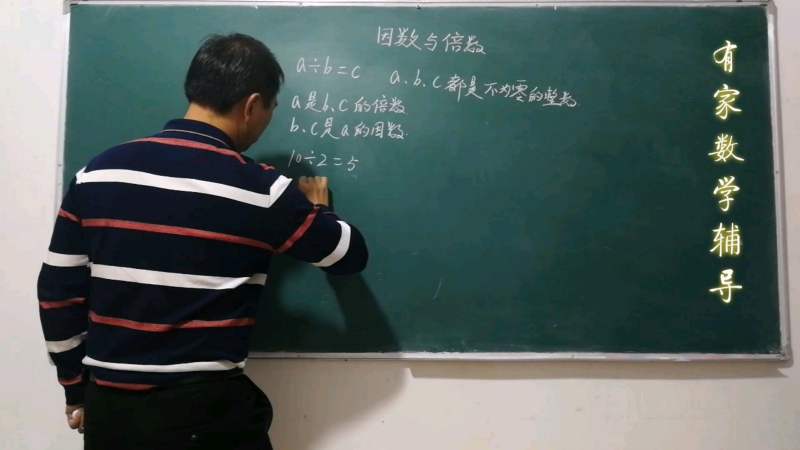 因数与倍数
a÷b=c a.b.c都是不为零的整数
a是b、c的倍数.
b、c是a的因数.
10÷2=5
有家数学辅导